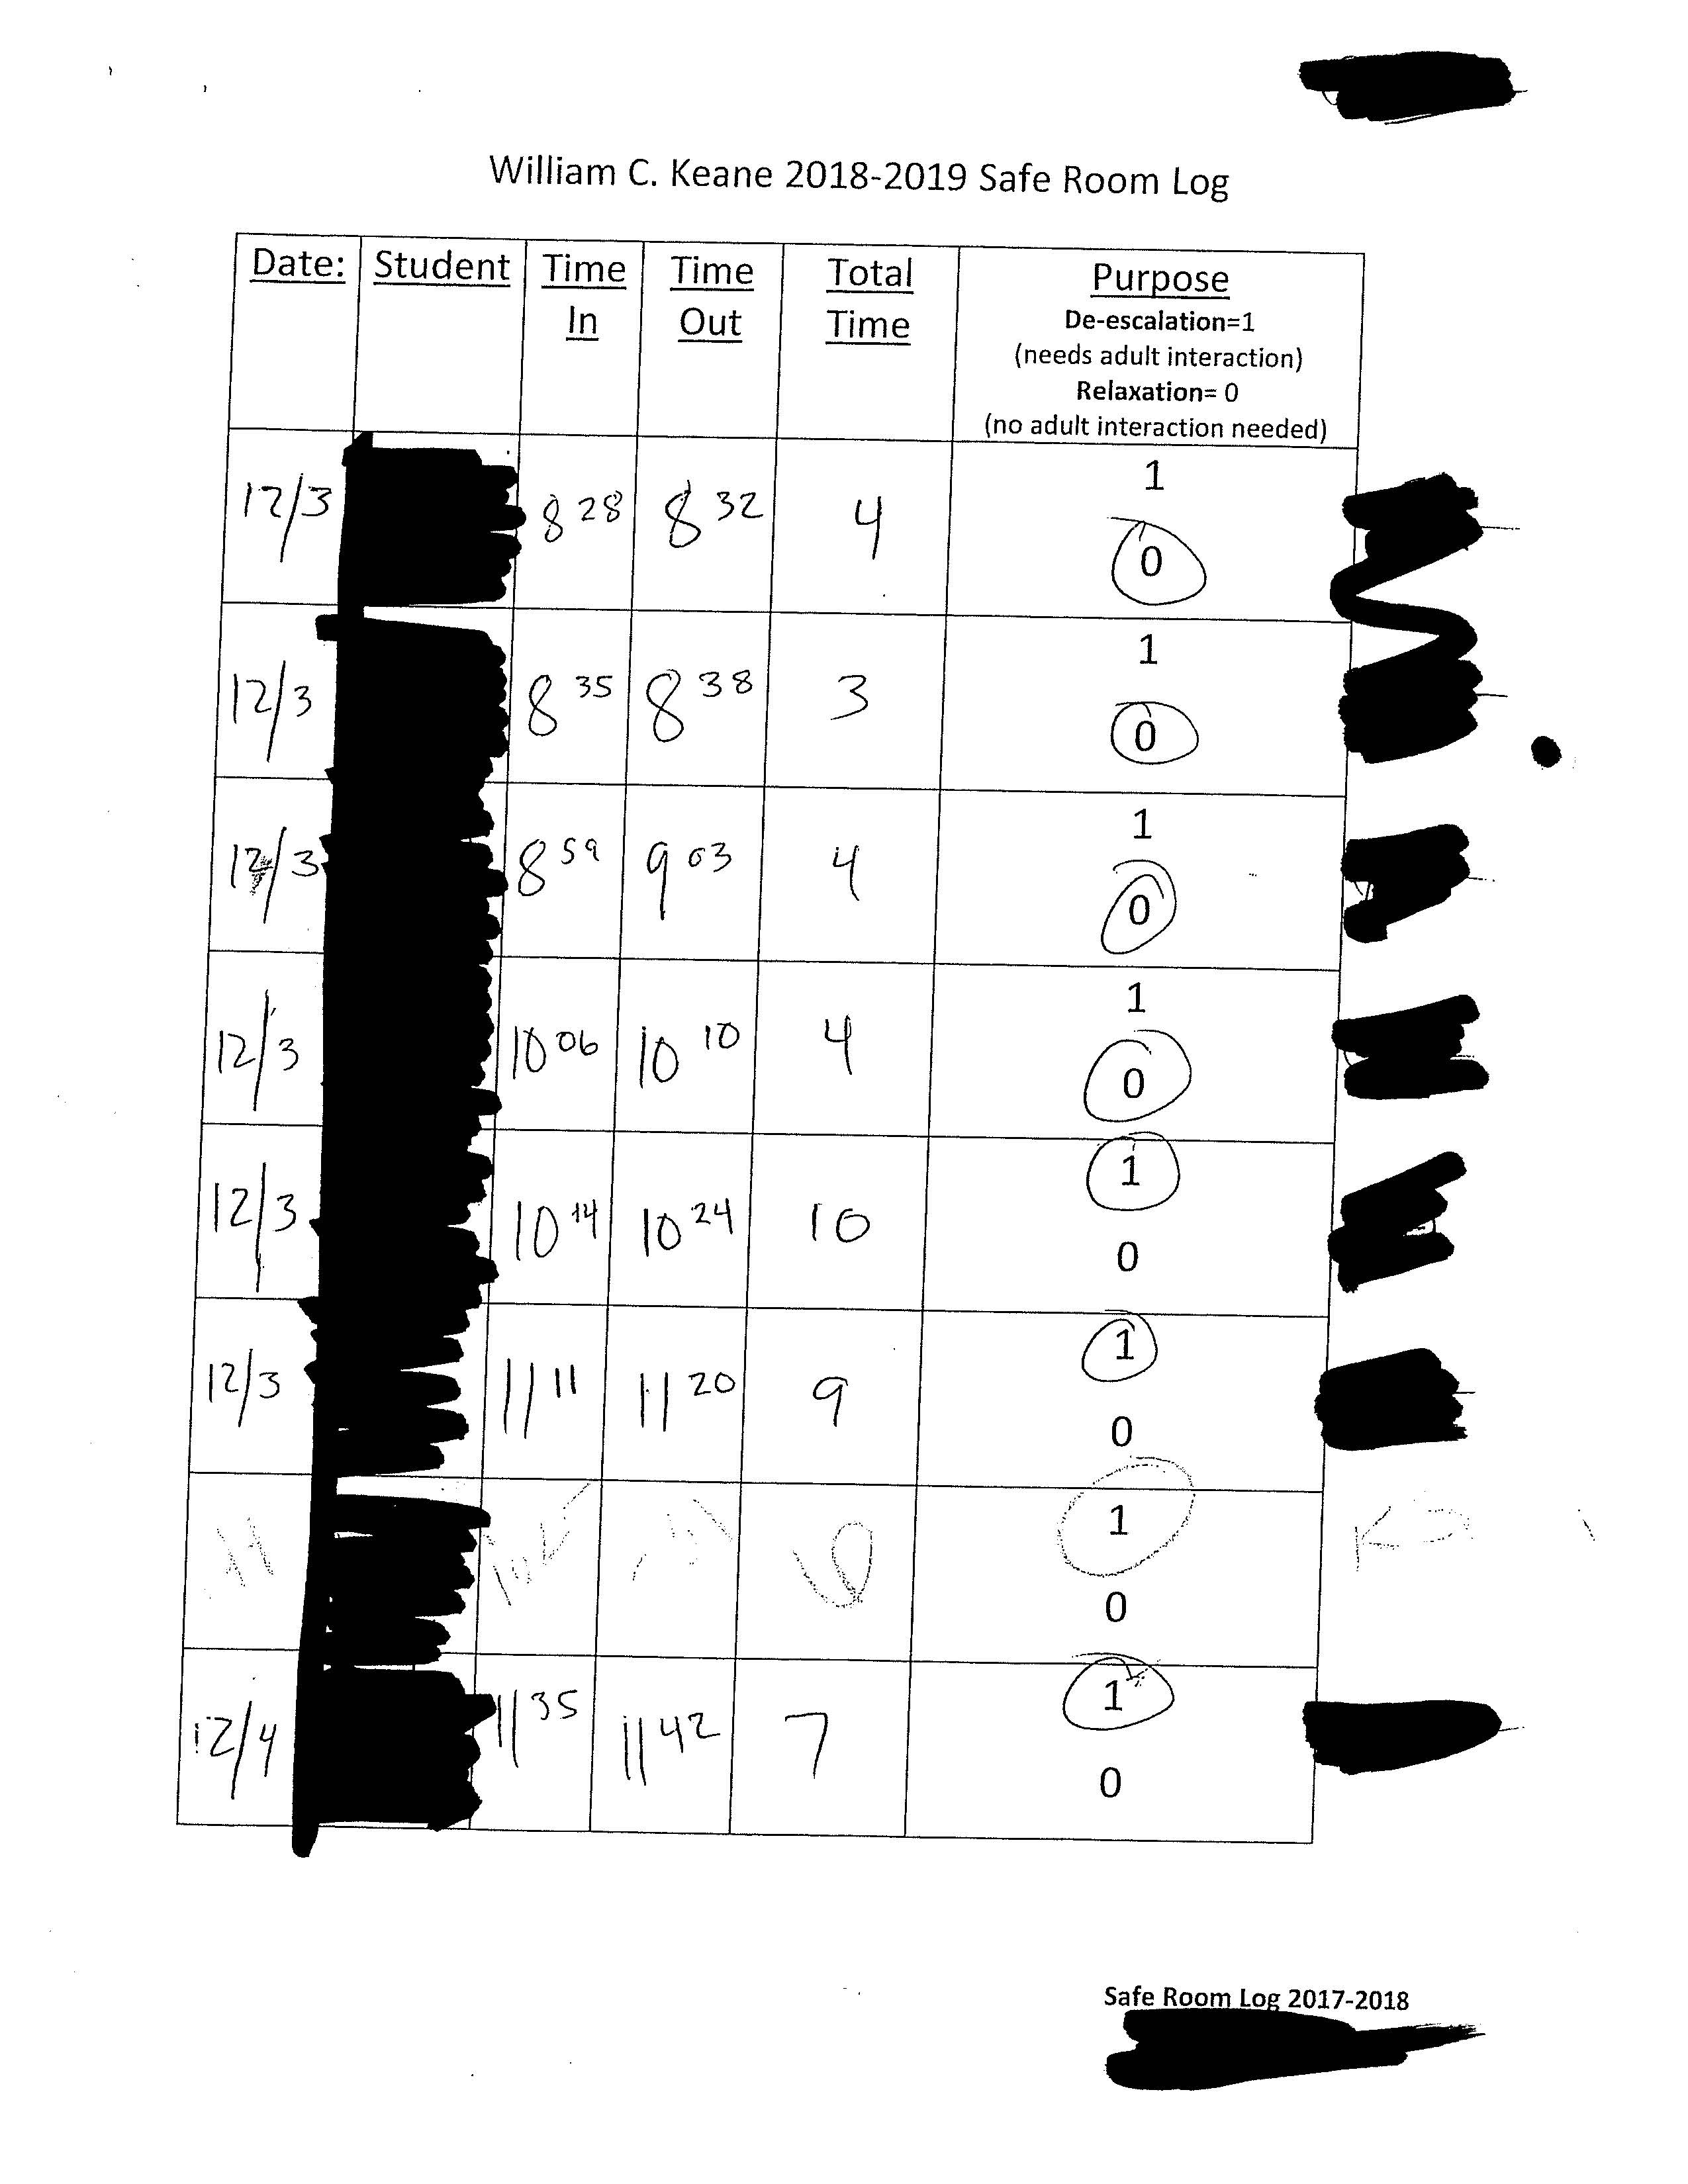 William C. Keane 2018-2019 Safe Room Log
Date: Student Time In Time Out Total Time Purpose
De-escalation=1
(needs adult interaction)
Relaxation= 0
(no adult interaction needed)
12/3 8 28 8 32 4 1 0
12/3 8 35 8 38 3 1 0
12/3 8 59 9 03 4 1 0
12/3 10 06 10 10 4 1 0
12/3 10 14 10 24 10 1 0
12/3 11 11 11 20 9 1 0
1 0
12/4 11 35 11 42 7 1 0
Safe Room Log 2017-2018